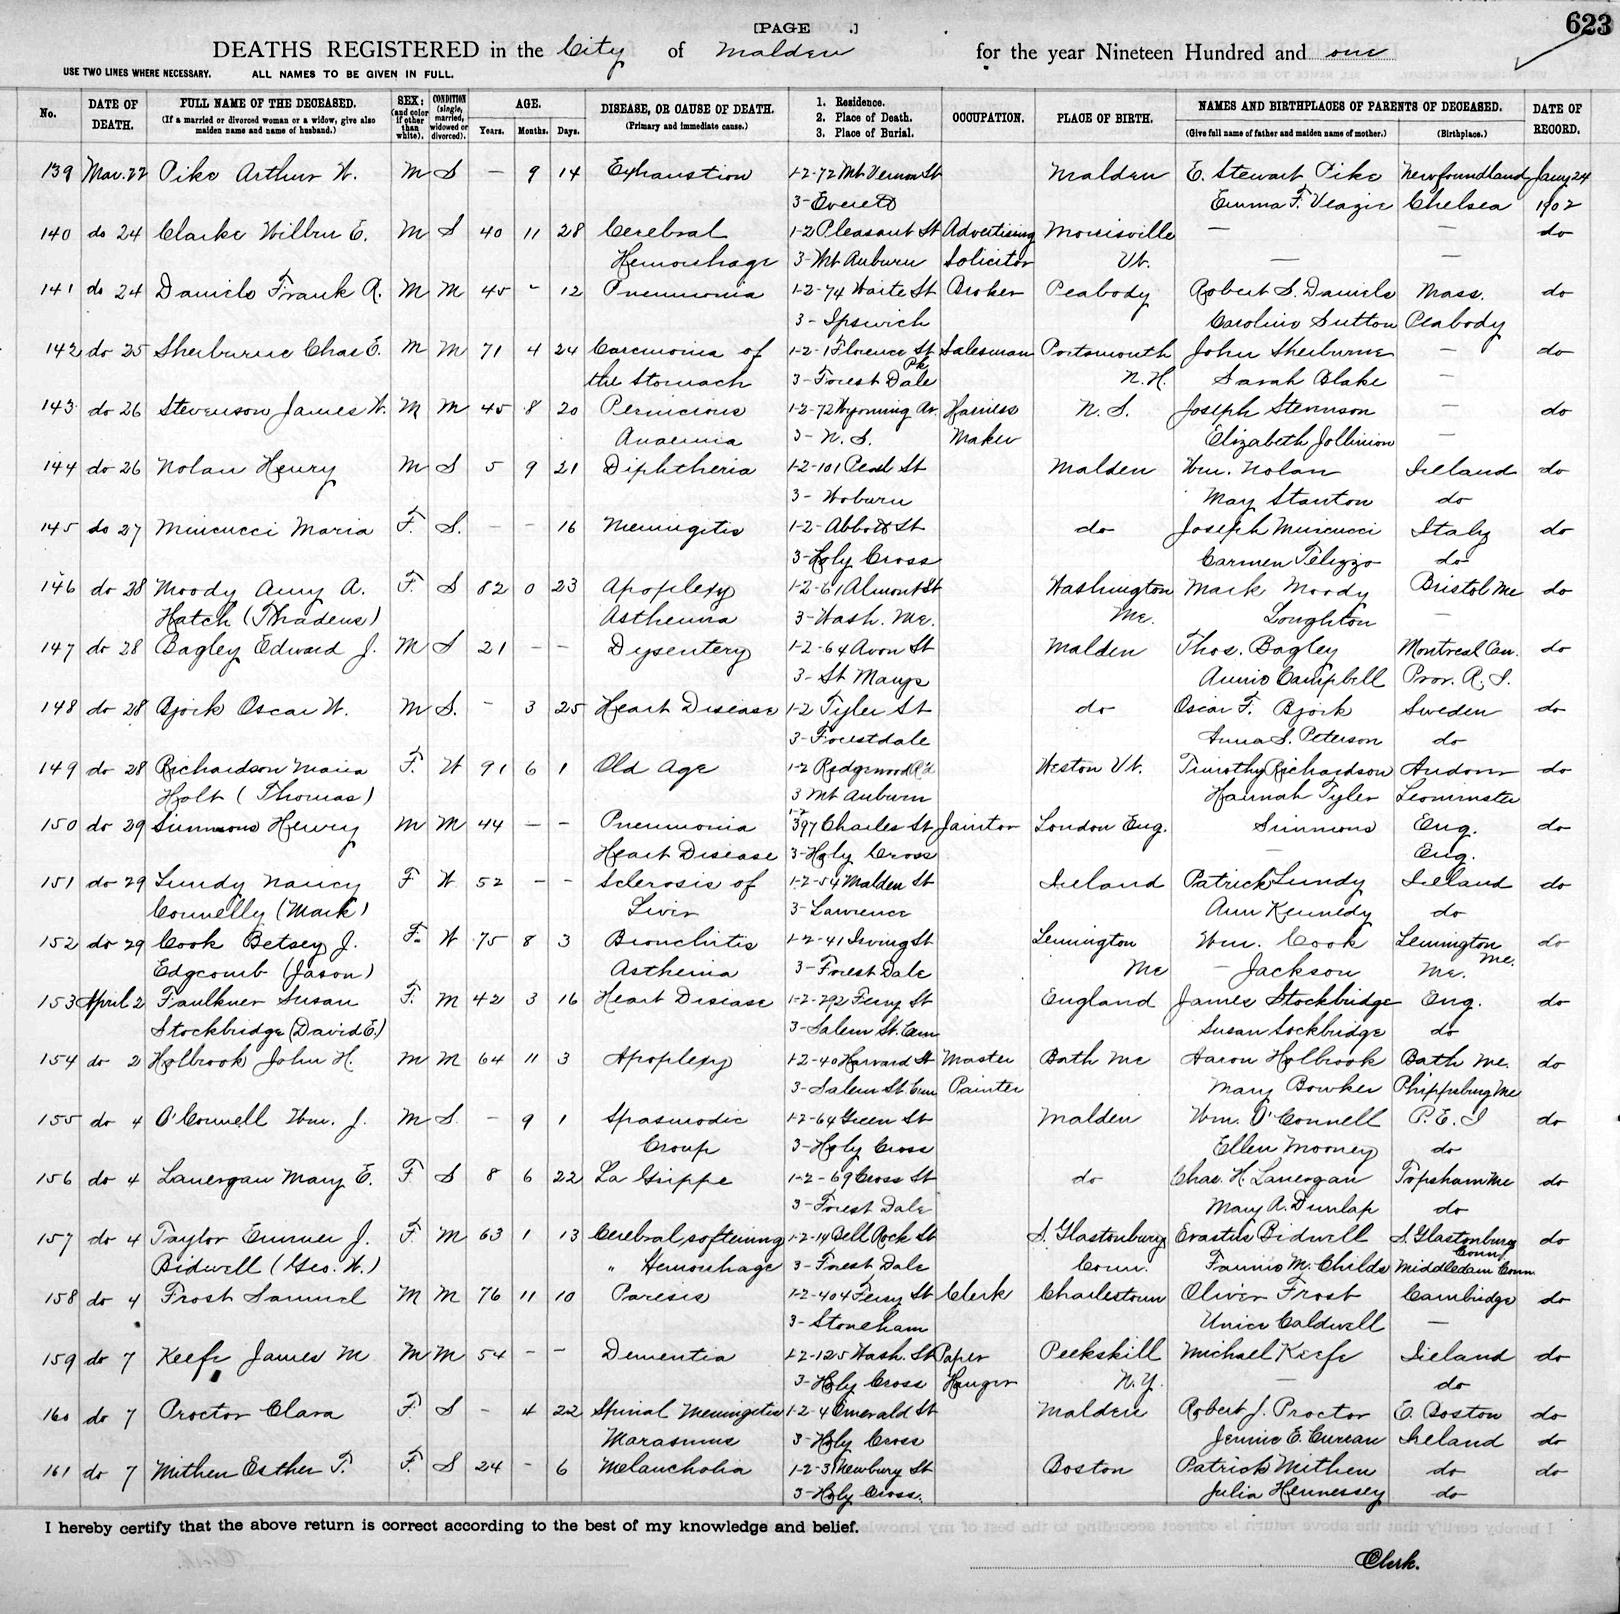 [PAGE .] 623
DEATHS REGISTERED in the City of Malden for the year Nineteen Hundred and one
USE TWO LINES WHERE NECESSARY. ALL NAMES TO BE GIVEN IN FULL.
No. DATE OF DEATH. FULL NAME OF THE DECEASED. (If a married or divorced woman or a widow, give also maiden name and name of husband.) SEX: (and color if other than white). CONDITION (single, married, widowed or divorced). AGE. Years. Months. Days. DISEASE, OR CAUSE OF DEATH. (Primary and immediate cause.) 1. Residence. 2. Place of Death. 3. Place of Burial. OCCUPATION. PLACE OF BIRTH. NAMES AND BIRTHPLACES OF PARENTS OF DECEASED. (Give full name of father and maiden name of mother.) (Birthplace.) DATE OF RECORD.
139 Mar. 22 Pike Arthur W. M S — 9 14 Exhaustion 1-2-72 Mt Vernon St Malden E. Stewart Pike Newfoundland Jany 24
3-Everett Emma F. Veazie Chelsea 1902
140 do 24 Clarke Wilbur E. M S 40 11 28 Cerebral 1-2 Pleasant St Advertising Morrisville — — do
Hemorrhage 3-Mt Auburn Solicitor Vt. — —
141 do 24 Daniels Frank A. M M 45 - 12 Pneumonia 1-2-74 Waite St Broker Peabody Robert S. Daniels Mass. do
3- Ipswich Caroline Sutton Peabody
142 do 25 Sherburne Chas E. M M 71 4 24 Carcinoma of 1-2-1 Florence St Pk Salesman Portsmouth John Sherburne — do
the Stomach 3-Forest Dale N.H. Sarah Blake —
143 do 26 Stevenson James W. M M 45 8 20 Pernicious 1-2-72 Wyoming Av. Harness N. S. Joseph Stevenson — do
Anaemia 3- N. S. Maker Elizabeth —
144 do 26 Nolan Henry M S 5 9 21 Diphtheria 1-2-101 Pearl St Malden Wm. Nolan Ireland do
3- Woburn May Stanton do
145 do 27 Muicucci Maria F. S. — - 16 Meningitis 1-2-Abbott St do Joseph Muicucci Italy do
3-Holy Cross Carmen do
146 do 28 Moody Amy A. F. S 82 0 23 Apoplexy 1-2-61 Almont St Washington Mark Moody Bristol Me do
Hatch (Thadeus) Asthenia 3-Wash. Me. Me. Loughton —
147 do 28 Bagley Edward J. M S 21 - - Dysentery 1-2-64 Avon St Malden Thos. Bagley Montreal Can. do
3- St Marys Annie Campbell Prov. R. I.
148 do 28 Bjork Oscar W. M S. - 3 25 Heart Disease 1-2 Tyler St do Oscar F. Bjork Sweden do
3-Forestdale Anna S. Peterson do
149 do 28 Richardson Maria F. W 91 6 1 Old Age 1-2 Ridgewood Rd Weston Vt. Timothy Richardson Andover do
Holt (Thomas) 3 Mt Auburn Hannah Tyler Leominster
150 do 29 Simmons Henry M M 44 — — Pneumonia 1-2 397 Charles St Janitor London Eng. Simmons Eng. do
Heart Disease 3-Holy Cross — Eng.
151 do 29 Lundy Nancy F W 52 - - Sclerosis of 1-2-54 Malden St Ireland Patrick Lundy Ireland do
Connelly (Mark) Liver 3-Lawrence Ann Kennedy do
152 do 29 Cook Betsey J. F. W 75 8 3 Bronchitis 1-2-41 Irving St Lemington Wm. Cook Lemington do
Edgcomb (Jason) Asthenia 3-Forest Dale Me — Jackson Me. Me.
153 April 2 Faulkner Susan F. M 42 3 16 Heart Disease 1-2-292 Ferry St England James Stockbridge Eng. do
Stockbridge (David E.) 3-Salem St. Cem Susan Sockbridge do
154 do 2 Holbrook John H. M M 64 11 3 Apoplexy 1-2-40 Harvard St Master Bath Me Aaron Holbrook Bath Me. do
3-Salem St. Cem Painter Mary Bowker Phippsburg Me
155 do 4 O'Connell Wm. J. M S - 9 1 Spasmodic 1-2-64 Green St Malden Wm. O'Connell P. E. I do
Croup 3-Holy Cross Ellen Mooney do
156 do 4 Lanergan Mary E. F S 8 6 22 La Grippe 1-2-69 Cross St do Chas. H. Lanergan Topsham Me do
3-Forest Dale Mary A. Dunlap do
157 do 4 Taylor Emmer J. F. M 63 1 13 Cerebral softening 1-2-14 Bell Rock St S. Glastonbury Erastus Bidwell S. Glastonbury Conn do
Bidwell (Geo. W.) " Hemorrhage 3-Forest Dale Conn. Fannie M. Childs Conn
158 do 4 Frost Samuel M M 76 11 10 Paresis 1-2-404 Ferry St Clerk Charlestown Oliver Frost Cambridge do
3-Stoneham Unice Caldwell —
159 do 7 Keefe James M M M 54 - - Dementia 1-2-125 Wash. St Paper Peekskill Michael Keefe Ireland do
3-Holy Cross Hanger N.Y. — do
160 do 7 Proctor Clara F. S - 4 22 Spinal Meningitis 1-2-4 Emerald St Malden Robert J. Proctor E. Boston do
Marasmus 3-Holy Cross Jennie E. Curran Ireland do
161 do 7 Mithen Esther F. F. S 24 - 6 Melancholia 1-2-3 Newbury St Boston Patrick Mithen do do
3-Holy Cross. Julia Hennessey do
I hereby certify that the above return is correct according to the best of my knowledge and belief.
Clerk.